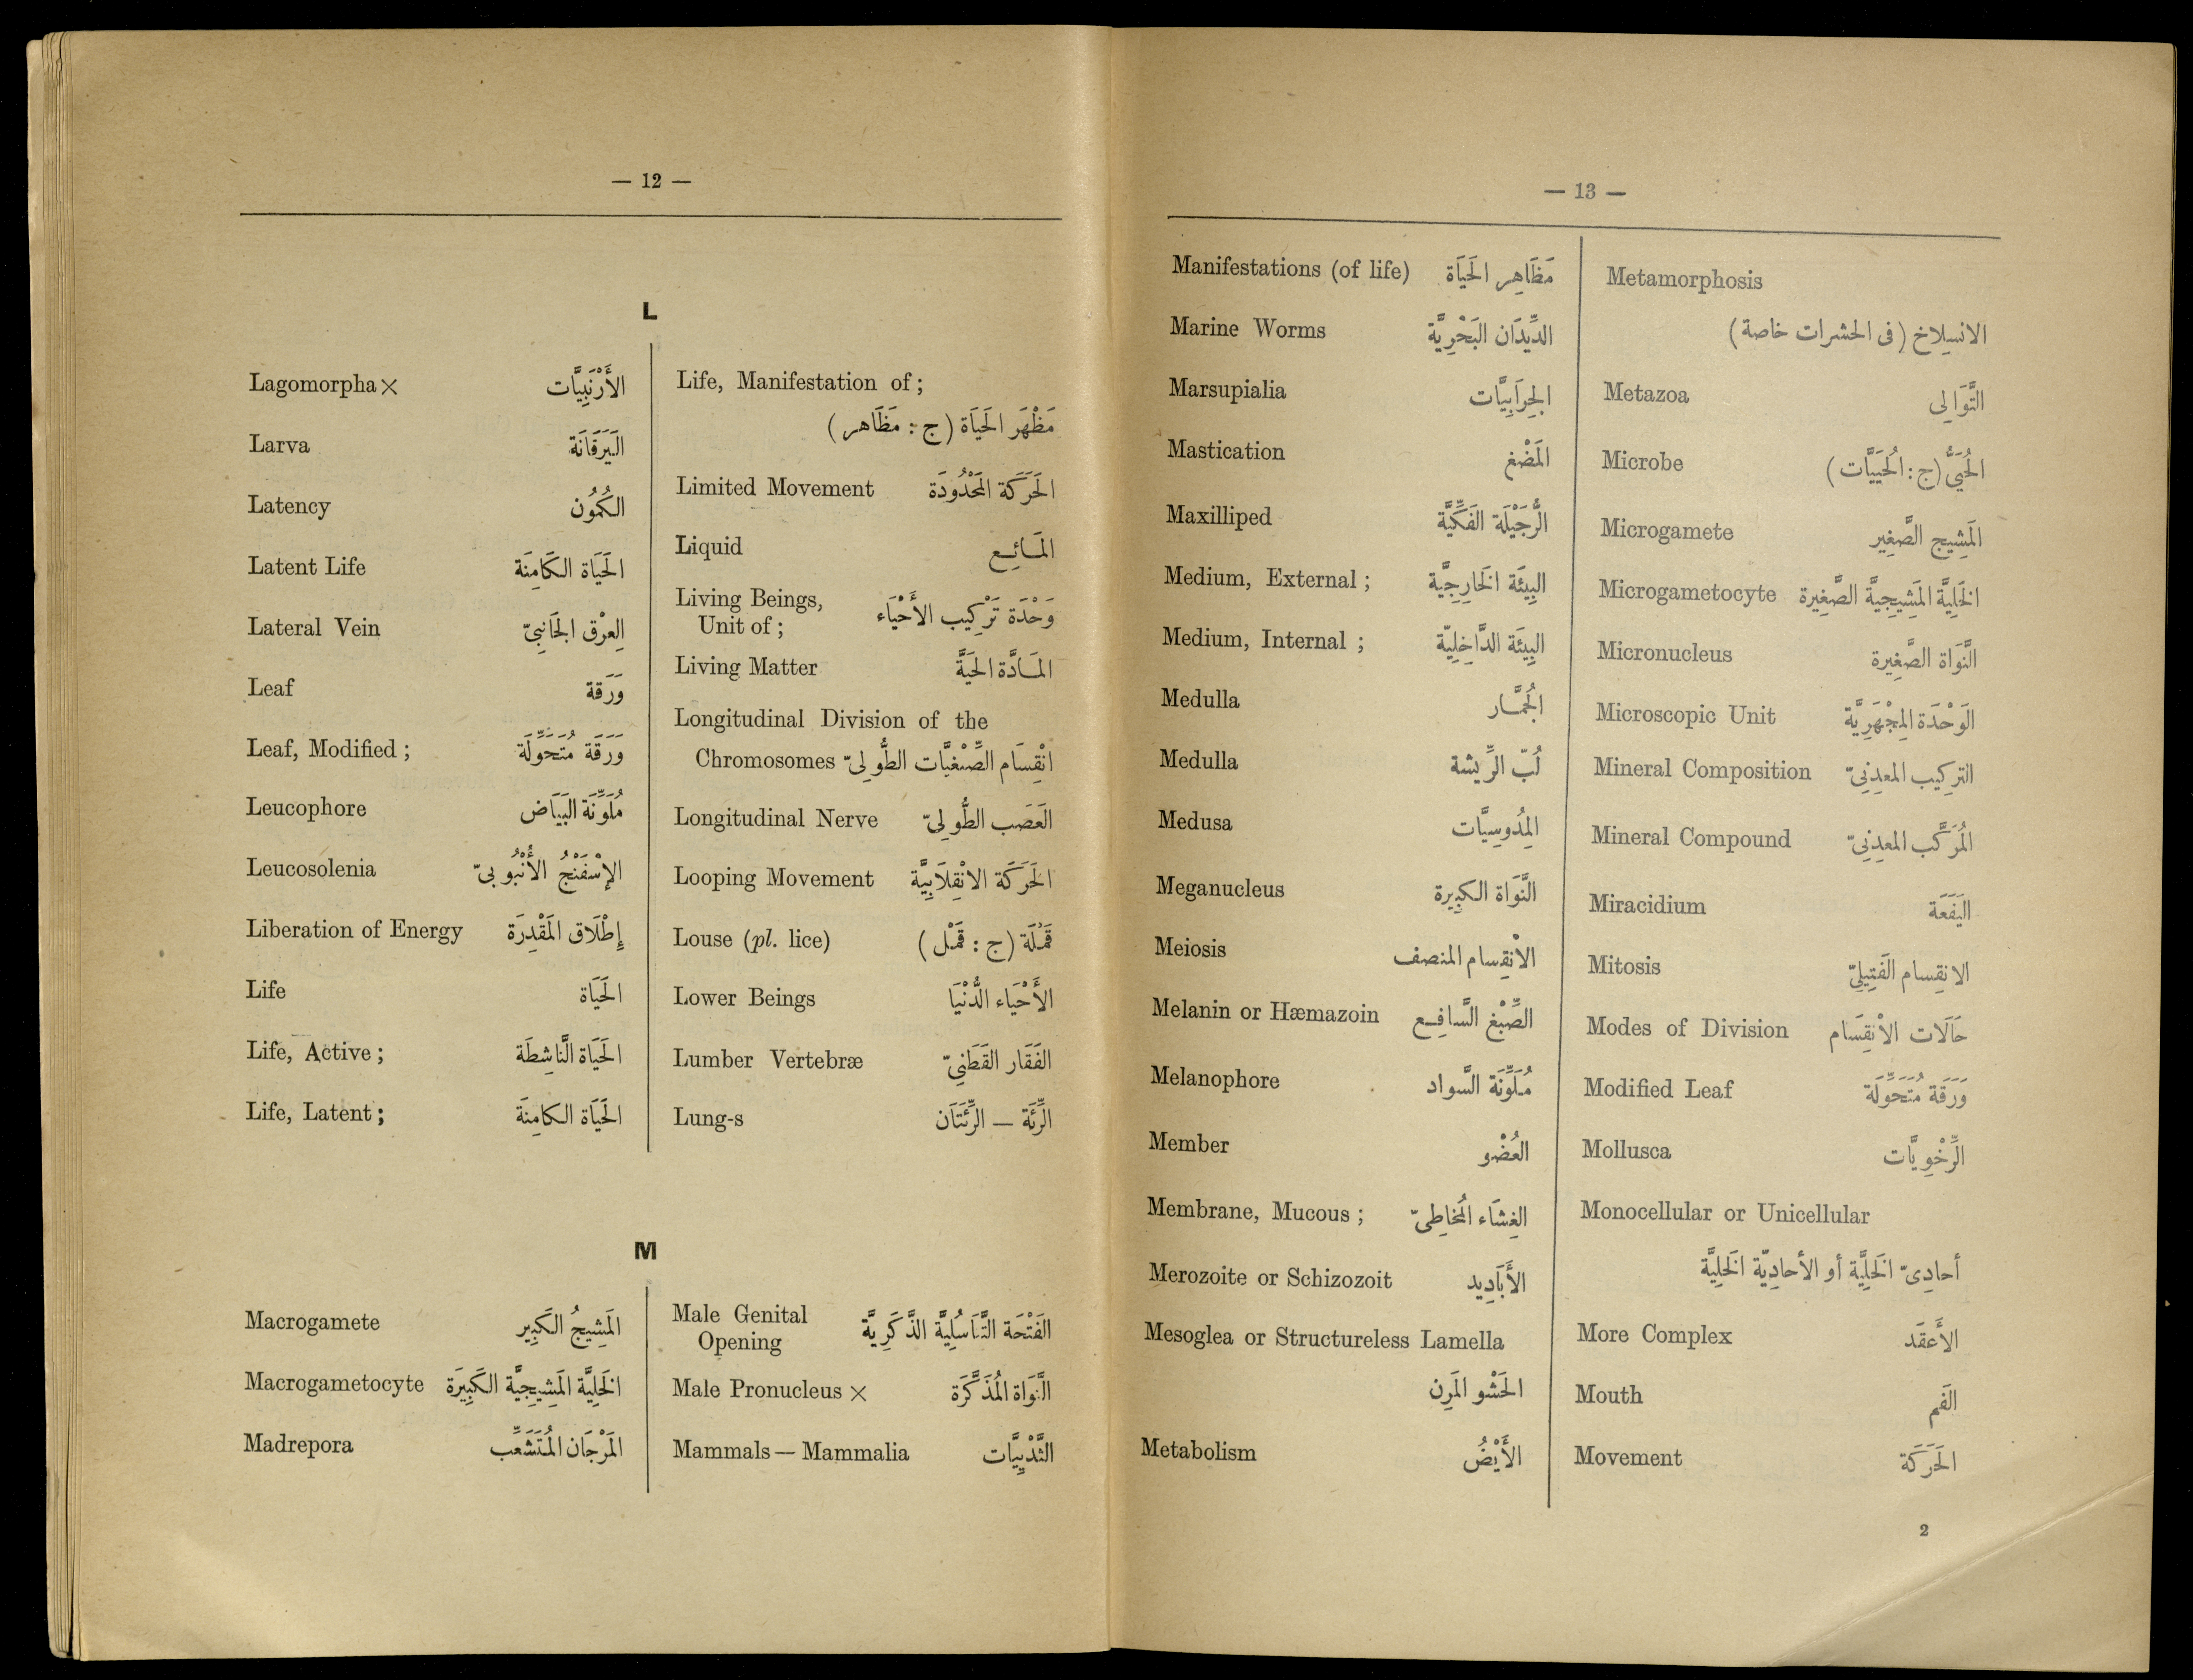 — 12 —
L
Lagomorpha× الأَرْنَبِيَّات
Larva اليَرَقَانَة
Latency الكُمُون
Latent Life الحَيَاة الكَامِنَة
Lateral Vein العِرْق الجَانِبِيّ
Leaf وَرَقَة
Leaf, Modified ; وَرَقَة مُتَحَوِّلَة
Leucophore مُلَوِّنَة البَيَاض
Leucosolenia الإِسْفَنْجُ الأُنْبُوبِيّ
Liberation of Energy إِطْلَاق المَقْدِرَة
Life الحَيَاة
Life, Active ; الحَيَاة النَّاشِطَة
Life, Latent ; الحَيَاة الكامِنَة
Life, Manifestation of ;
مَظْهَر الحَيَاة (ج : مَظَاهر)
Limited Movement الحَرَكَة المَحْدُودَة
Liquid المَائِع
Living Beings,
Unit of ; وَحْدَة تَرْكِيب الأَحْيَاء
Living Matter المَادَّة الحَيَّة
Longitudinal Division of the
Chromosomes انْقِسَام الصِّبْغِيَّات الطُّولِيّ
Longitudinal Nerve العَصَب الطُّولِيّ
Looping Movement الحَرَكَة الانْقِلَابِيَّة
Louse (pl. lice) قَمْلَة (ج : قَمْل)
Lower Beings الأَحْيَاء الدُّنْيَا
Lumber Vertebræ الفَقَار القَطَنِيّ
Lung-s الرِّئَة — الرِّئَتَان
M
Macrogamete المَشِيجُ الكَبِير
Macrogametocyte الخَلِيَّة المَشِيجِيَّة الكَبِيرَة
Madrepora المَرْجَان المُتَشَعِّب
Male Genital
Opening الفَتْحَة التَّنَاسُلِيَّة الذَّكَرِيَّة
Male Pronucleus × النَّوَاة المُذَكَّرَة
Mammals — Mammalia الثَّدْيِيَّات
— 13 —
Manifestations (of life) مَظَاهِر الحَيَاة
Marine Worms الدِّيدَان البَحْرِيَّة
Marsupialia الجِرَابِيَّات
Mastication المَضْغ
Maxilliped الرُّجَيْلَة الفَكِّيَّة
Medium, External ; البِيئَة الخَارِجِيَّة
Medium, Internal ; البِيئَة الدَّاخِلِيَّة
Medulla الجُمَّار
Medulla لُبّ الرِّيشة
Medusa المِدُوسِيَّات
Meganucleus النَّوَاة الكبِيرة
Meiosis الانْقِسام المنصف
Melanin or Hæmazoin الصِّبْغ السَّافِع
Melanophore مُلَوِّنَة السَّواد
Member العُضْو
Membrane, Mucous ; الغِشَاء المُخاطِيّ
Merozoite or Schizozoit الأَبَادِيد
Mesoglea or Structureless Lamella
الحَشْو المَرِن
Metabolism الأَيْضُ
Metamorphosis
الانسِلاخ (فى الحشرات خاصة)
Metazoa التَّوَالِى
Microbe الحُيَيُّ (ج : الحُيَيَّات)
Microgamete المَشِيج الصَّغِير
Microgametocyte الخَلِيَّة المَشِيجِيَّة الصَّغِيرة
Micronucleus النَّوَاة الصَّغِيرة
Microscopic Unit الوَحْدَة المِجْهَرِيَّة
Mineral Composition التركِيب المعدِنِيّ
Mineral Compound المُرَكَّب المعدِنِيّ
Miracidium اليَفَعَة
Mitosis الانقِسام الفَتِيلِيّ
Modes of Division حَالَات الانْقِسَام
Modified Leaf وَرَقَة مُتَحَوِّلَة
Mollusca الرِّخْوِيَّات
Monocellular or Unicellular
أحادِىّ الخَلِيَّة أو الأحادِيّة الخَلِيَّة
More Complex الأَعقَد
Mouth الفَم
Movement الحَرَكَة
2